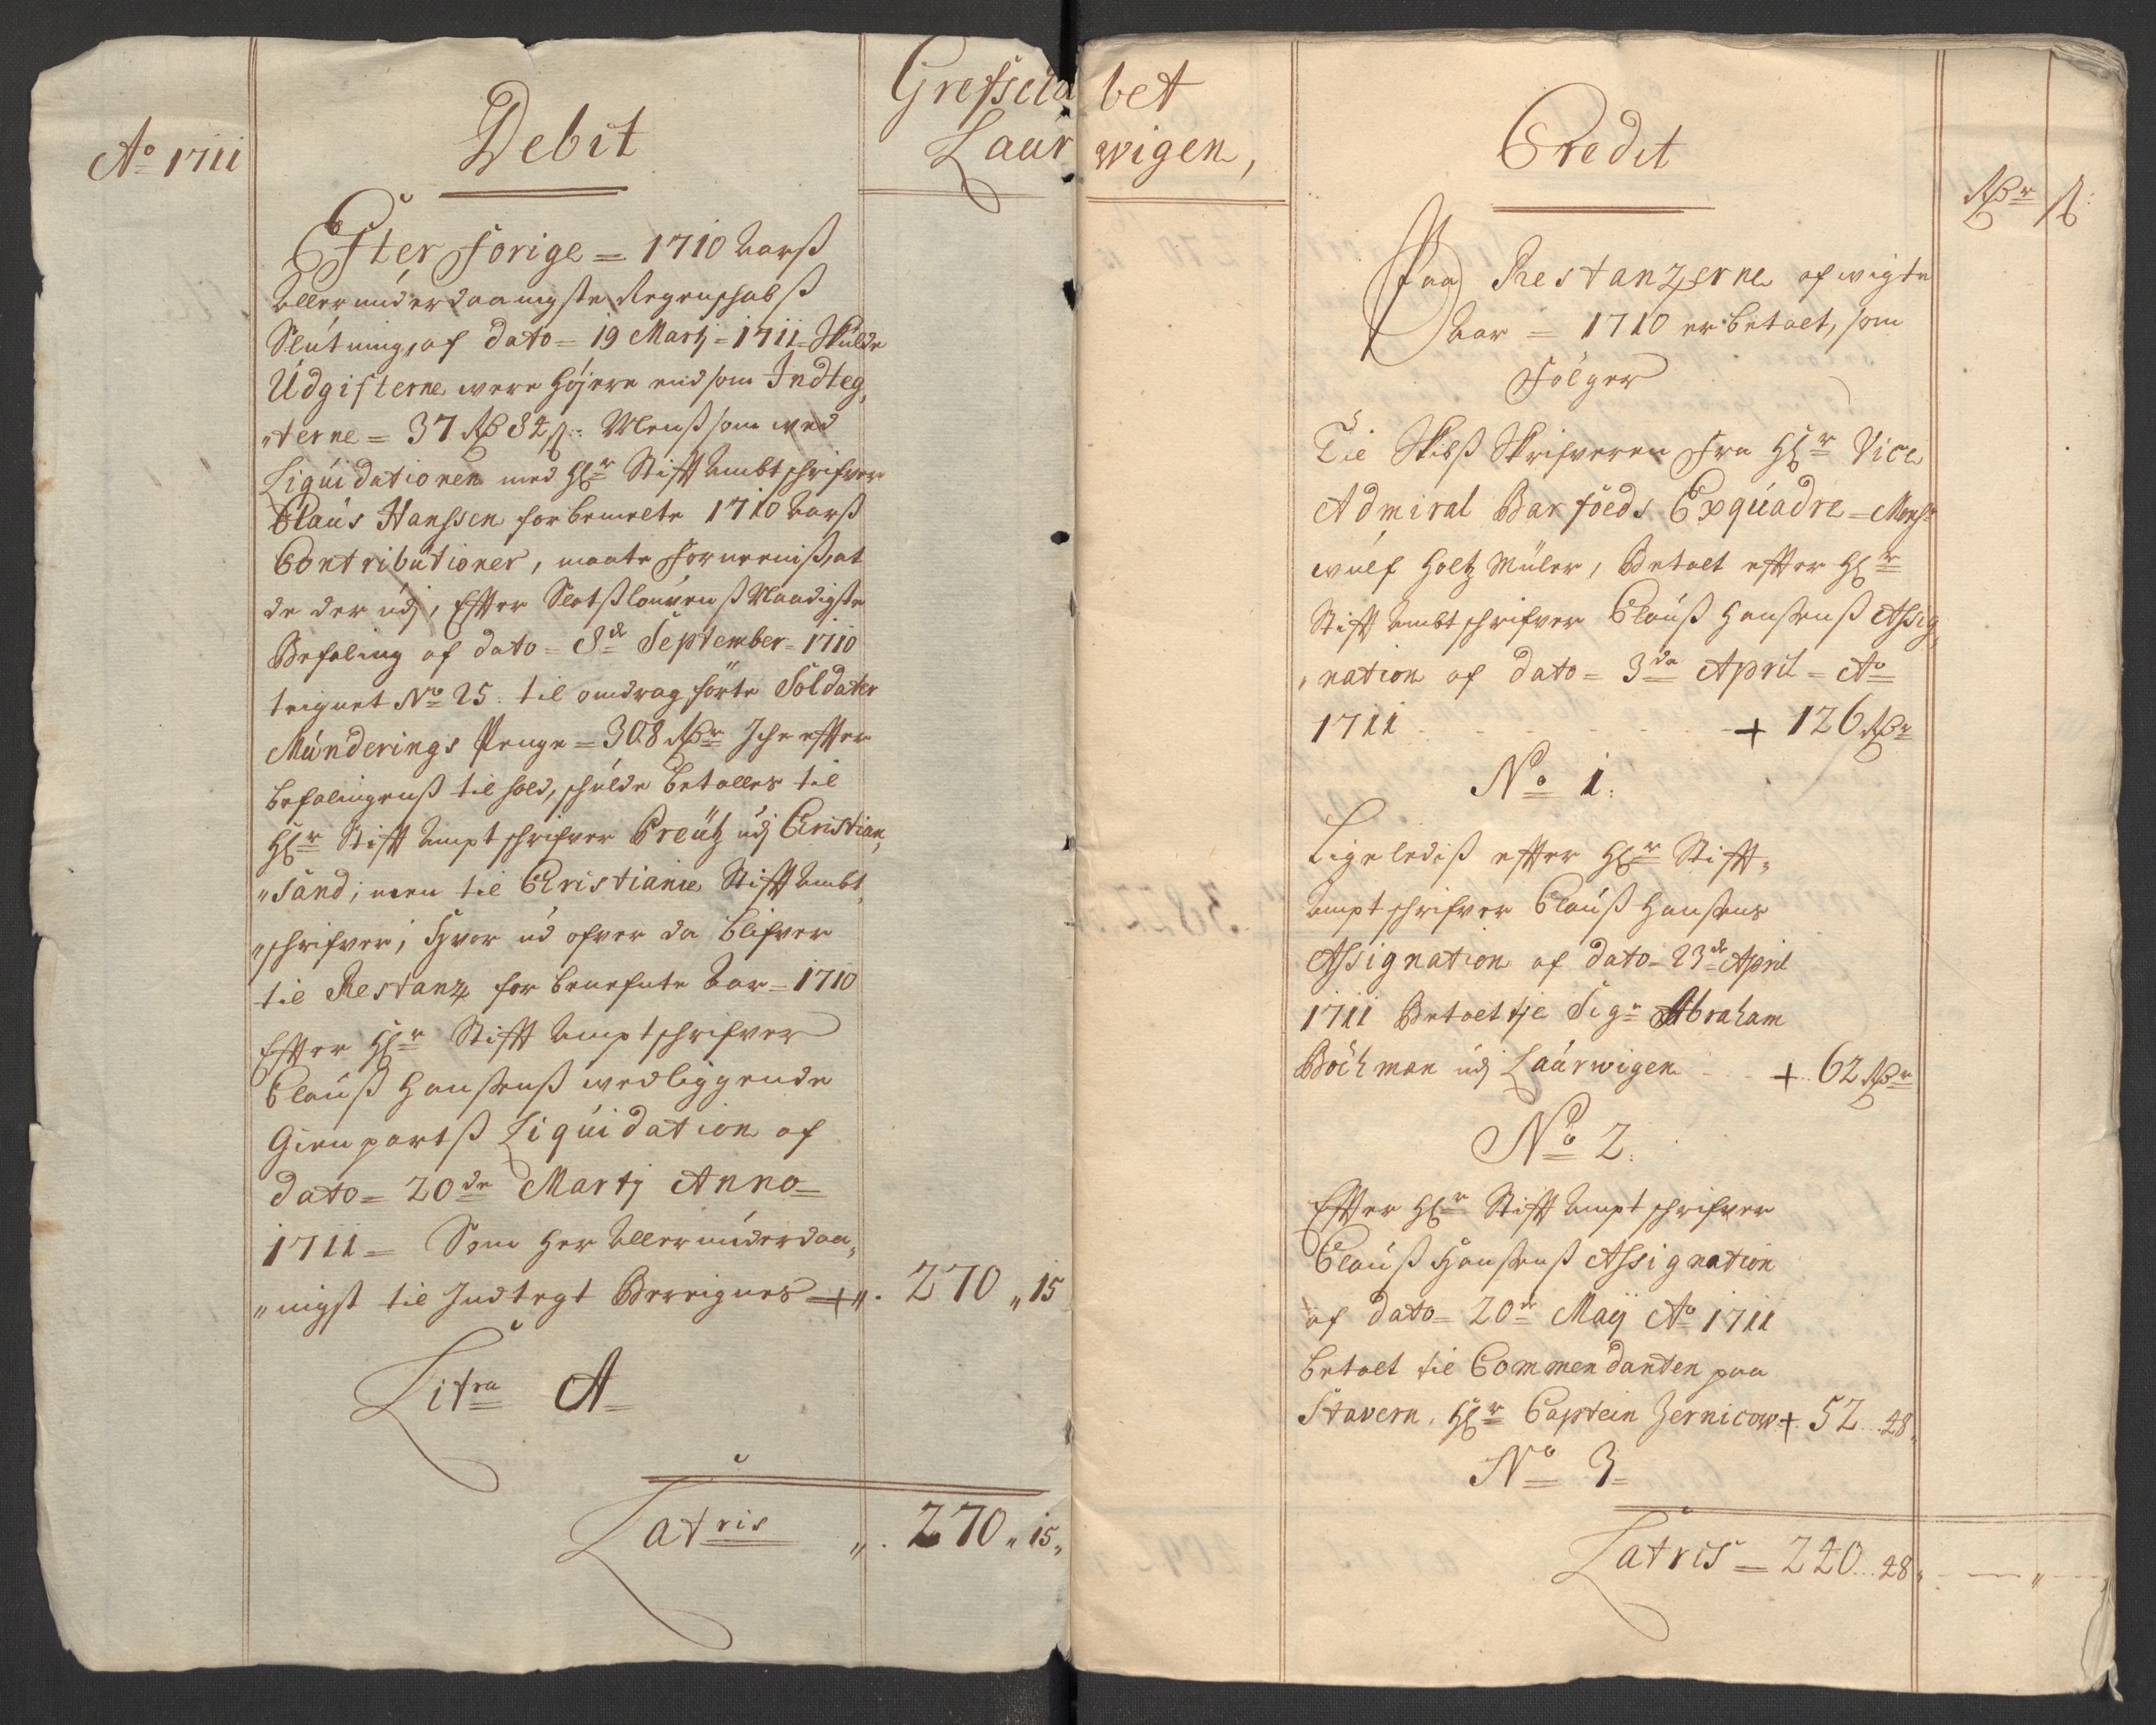 Ao 1711
Debit
Grefscha
Laur
Efter forige = 1710 Aarß
Allerunderdaanigste Regenschabß
Slutning, af dato = 19 Martj = 1711 = Skulde
Udgifterne were høyere end som Indteg,
"terne = 37 Rd 84 s: Menß som wed
Liquidationen med Hr Stifft Ambtschrifver
Claus Hanssen for bemelte 1710 Aarß
Contributioner, maate forneniß, at
de der udj, Effter Slotßlouvenß Naadigste
Befaling af dato = 8de September = 1710
teignet No 25. til omdrag förte Soldater
Munderings Penge = 308 Rdr Iche effter
befalingenß til hold, schulde betalles til
Hr Stifft Amptschrifver Creütz udj Cristian,
"sand; men til Cristianie Stifft Ambt,
"schrifver; Hvor ud ofver da blifver
til Restanz for benefnte Aar = 1710
Effter Hr Stifft Amptschrifver
Clauß Hanßenß wedliggende
Gienpartß Liquidation af
dato = 20de Martj Anno =
1711 = Som her Allerunderdaa,
"nigst til Indtegt Bereignes + ". 270 " 15
Litra A
Latris ". 270 " 15 "
bet
wigen,
Credit
Rdr s:
Paa Restanzerne af wigte
Aar = 1710 er betalt, som
Følger
Til Skibß Skrifveren fra Hr Vice
Admiral Barfoeds Exquadre = Monsr
Wulf Holtz Müler, Betalt effter Hr
Stifft Ambtschrifver Clauß Hanßenß Assig,
"nation af dato = 3de April = Ao
1711 + 126 Rdr
No 1.
Ligelediß effter Hr Stifft,
Amptschrifver Clauß Hanßens
Assignation af dato = 23de April
1711 Betalt til Sigr Abraham
Böchman udj Laurwigen + 62 Rdr
No 2.
Effter Hr Stifft Amptschrifver
Clauß Hanßenß Assignation
af dato = 20de Maij Ao 1711
betalt til Commendanten paa
Stavern, Hr Captein Zernicow + 52 .. 48 "
No 3
Latris = 240 .. 48 "